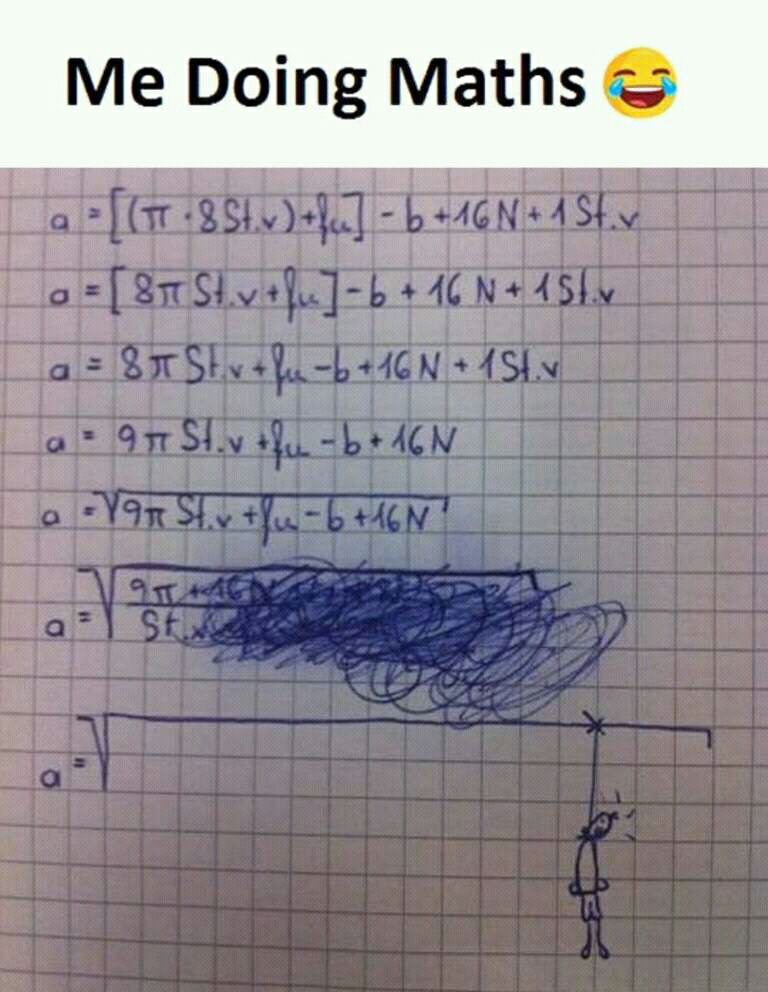 Me Doing Maths 😂
a = [(π · 8St.v) + fu] - b + 16N + 1St.v
a = [8π St.v + fu] - b + 16N + 1St.v
a = 8π St.v + fu - b + 16N + 1St.v
a = 9π St.v + fu - b + 16N
a = √9π St.v + fu - b + 16N
a = √9π + 16N
St.
a = √